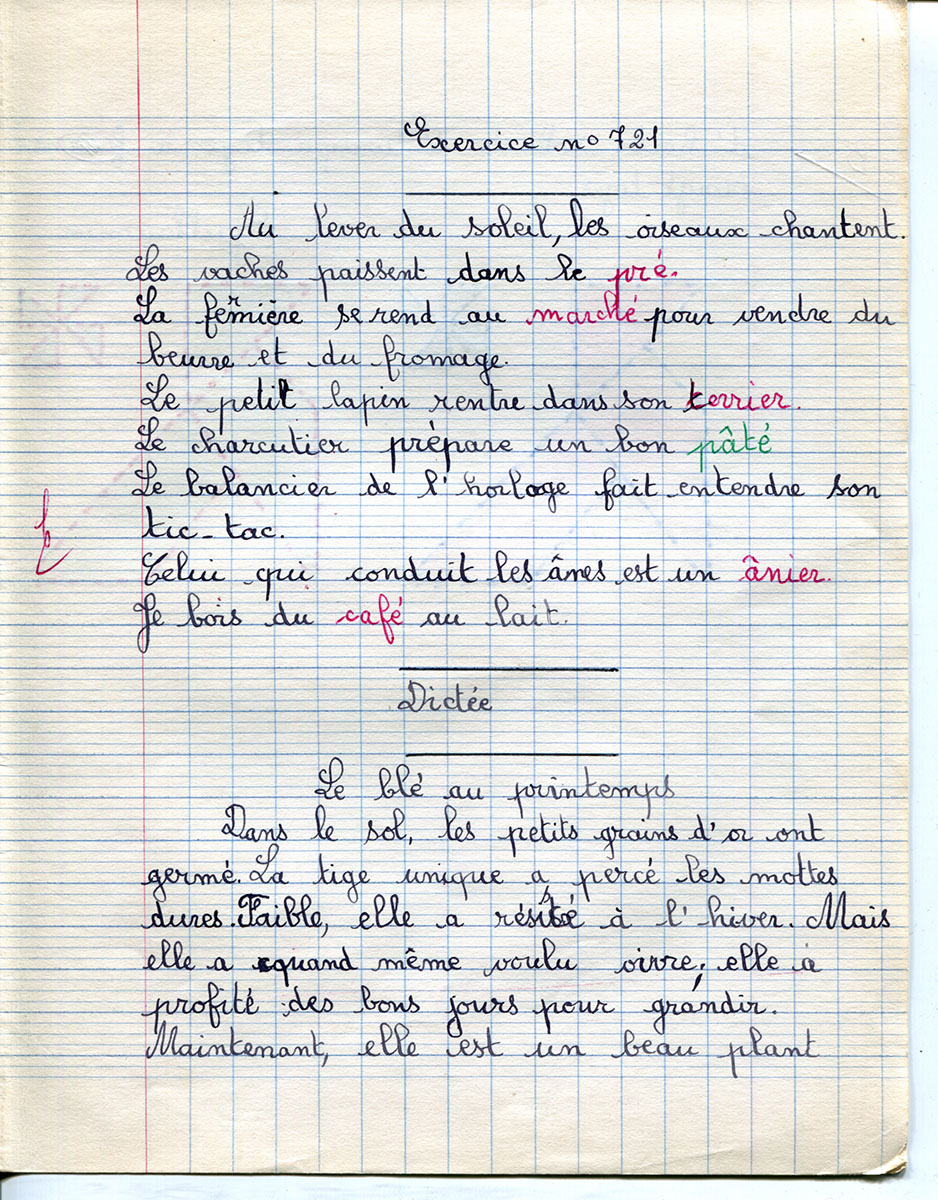 Exercice no 721
Au lever du soleil, les oiseaux chantent.
Les vaches paissent dans le pré.
La fermière se rend au marché pour vendre du
beurre et du fromage.
Le petit lapin rentre dans son terrier.
Le charcutier prépare un bon pâté
Le balancier de l'horloge fait entendre son
tic-tac.
Celui qui conduit les ânes est un ânier.
Je bois du café au lait.
Dictée
Le blé au printemps
Dans le sol, les petits grains d'or ont
germé. La tige unique a percé les mottes
dures. Faible, elle a résisté à l'hiver. Mais
elle a quand même voulu vivre; elle a
profité des bons jours pour grandir.
Maintenant, elle est un beau plant